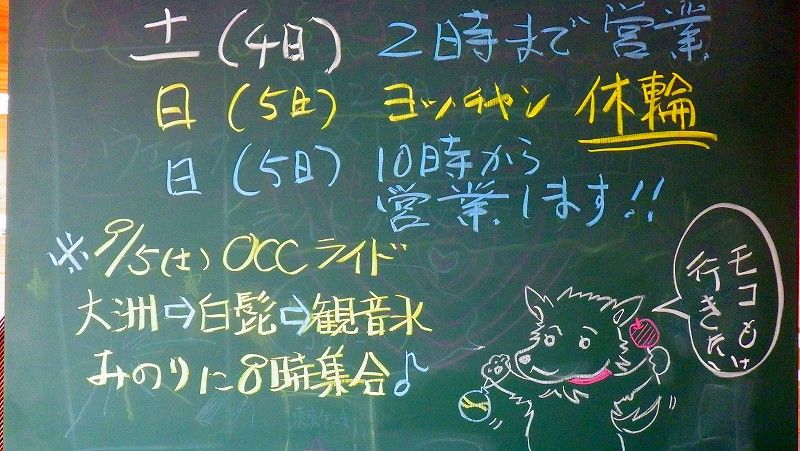 土 (4日) 2時まで営業
日 (5日) ヨッチャン 休輪
日 (5日) 10時から
営業します!!
※ 9/5(土) OCCライド
大洲⇨白髭⇨観音水
みのりに8時集合♪
モコも
行きたい